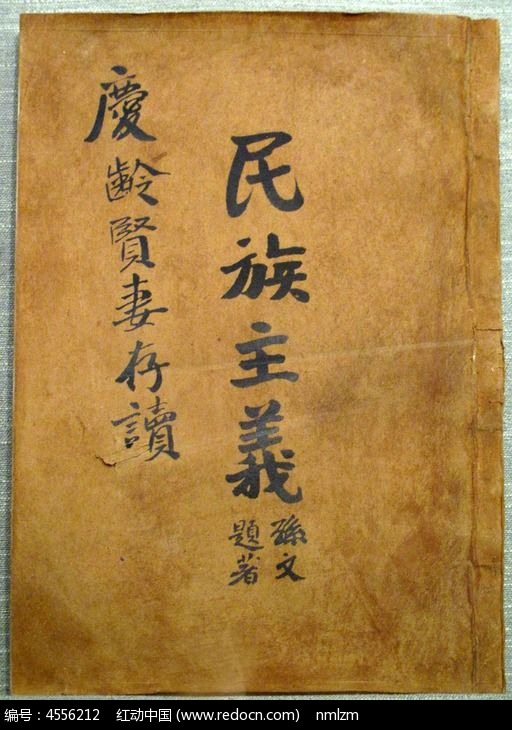 民族主義
孫文
題著
慶齡賢妻存讀
编号：4556212 红动中国 (www.redocn.com) nmlzm